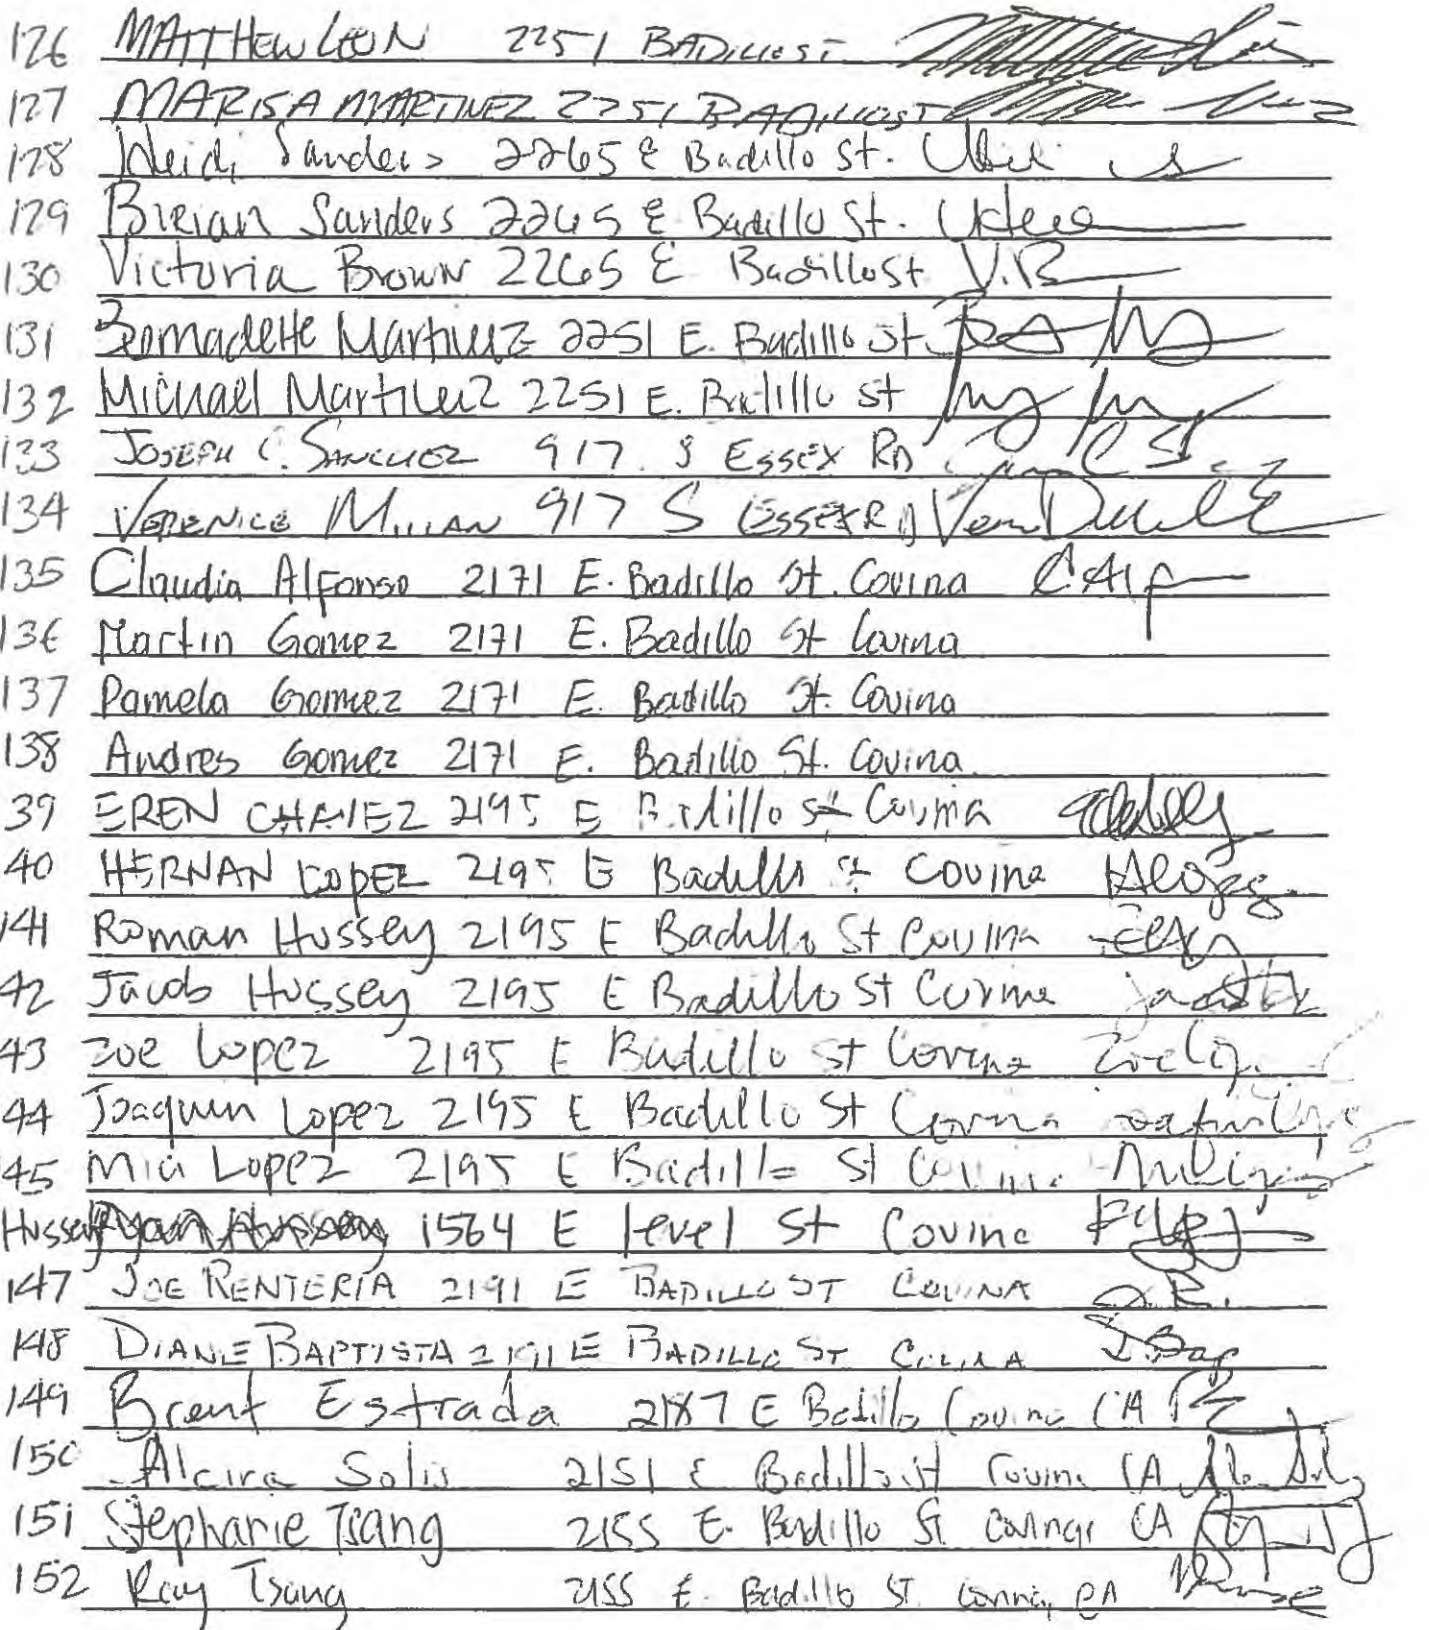 126 MATTHEW LEON 2251 BADILLO ST
127 MARISA MARTINEZ 2251 BADILLO ST
128 Heidi Sanders 2265 E Badillo St.
129 Breian Sanders 2265 E Badillo St.
130 Victoria Brown 2265 E Badillo St V.B
131 Bernadette Martinez 2251 E. Badillo St
132 Michael Martinez 2251 E. Badillo St
133 JOSEPH C. SANCHEZ 917 S ESSEX RD
134 VERENICE MILLAN 917 S ESSEX RD
135 Claudia Alfonso 2171 E. Badillo St. Covina C Alf
136 Martin Gomez 2171 E. Badillo St Covina
137 Pamela Gomez 2171 E. Badillo St. Covina
138 Andres Gomez 2171 E. Badillo St. Covina
39 EREN CHAVEZ 2195 E Badillo St Covina
40 HERNAN LOPEZ 2195 E Badillo St Covina
141 Roman Hussey 2195 E Badillo St Covina
42 Jacob Hussey 2195 E Badillo St Covina
43 Zoe Lopez 2195 E Badillo St Covina
44 Joaquin Lopez 2195 E Badillo St Covina
45 Mia Lopez 2195 E Badillo St Covina
Hussey Ryan Hussey 1564 E level St Covina
147 JOE RENTERIA 2191 E BADILLO ST COVINA J.R.
148 DIANE BAPTISTA 2191 E BADILLO ST COVINA D.Bap
149 Brent Estrada 2187 E Badillo Covina CA
150 Alcira Solis 2151 E Badillo St Covina CA
151 Stephanie Tsang 2155 E. Badillo St. Covina, CA
152 Ray Tsang 2155 E. Badillo ST. Covina, CA